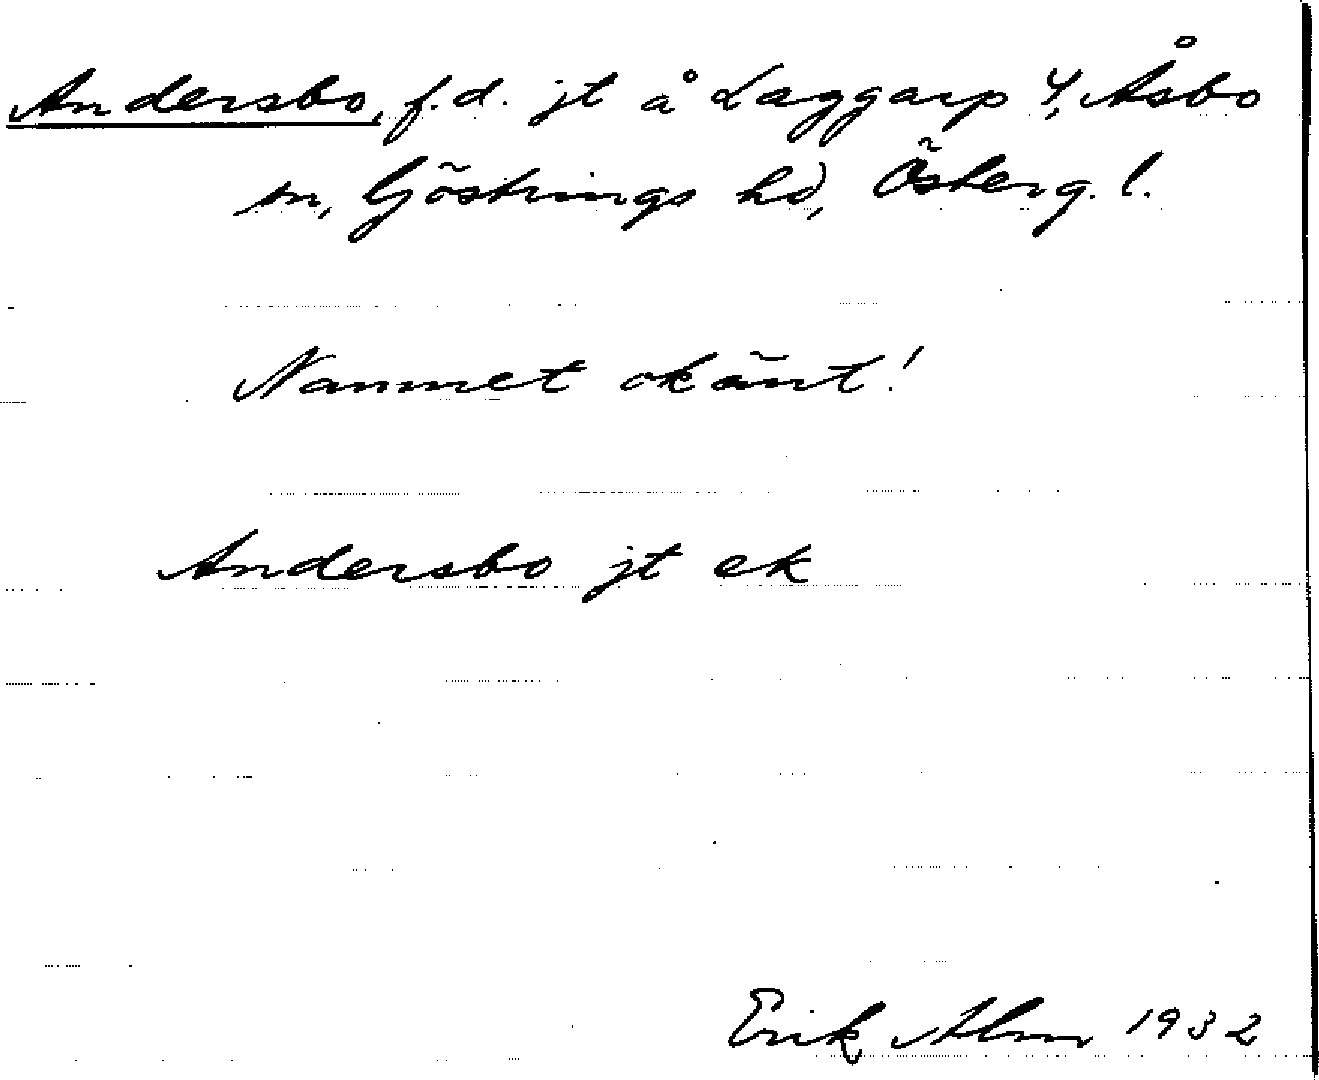 Andersbo, f.d. jt å Laggarp 4, Åsbo
sn, Göstrings hd, Österg. l.
Namnet okänt!
Andersbo jt ek
Erik Alm 1932